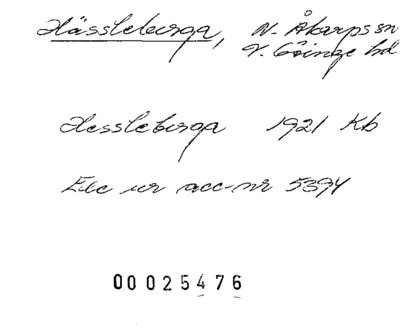 Hässleberga, N. Åkarps sn
V. Göinge hd
Hessleberga 1921 Kb
Exc ur acc-nr 5394
00025476